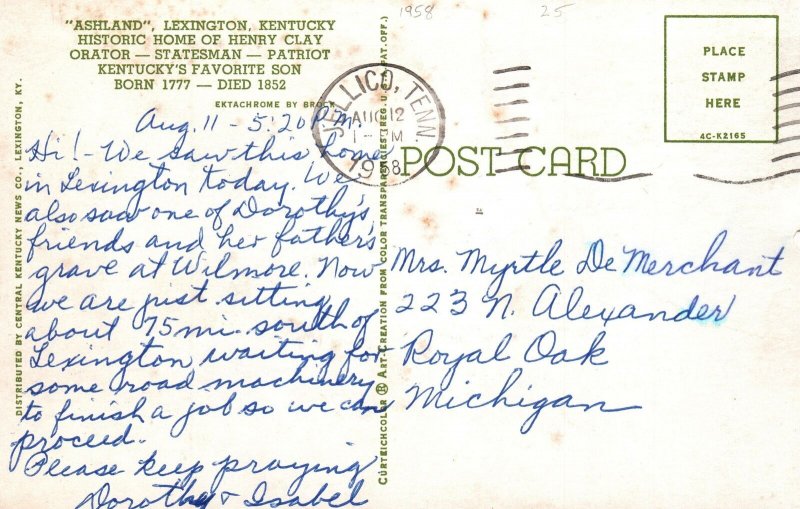 "ASHLAND", LEXINGTON, KENTUCKY
HISTORIC HOME OF HENRY CLAY
ORATOR — STATESMAN — PATRIOT
KENTUCKY'S FAVORITE SON
BORN 1777 — DIED 1852
EKTACHROME BY BROCK
Aug. 11 - 5:20 P.M.
Hi! - We saw this home
in Lexington today. We
also saw one of Dorothy's
friends and her father's
grave at Wilmore. Now
we are just sitting
about 75 mi. south of
Lexington waiting for
some road machinery
to finish a job so we can
proceed.
Please keep praying
Dorothy & Isabel
DISTRIBUTED BY CENTRAL KENTUCKY NEWS CO., LEXINGTON, KY.
CURTEICHCOLOR ® ART-CREATION FROM COLOR TRANSPARENCIES (REG. U.S.A. PAT. OFF.)
1958
25
JELLICO, TENN.
AUG 12
1958
POST CARD
PLACE
STAMP
HERE
4C-K2165
Mrs. Myrtle De Merchant
223 N. Alexander
Royal Oak
Michigan